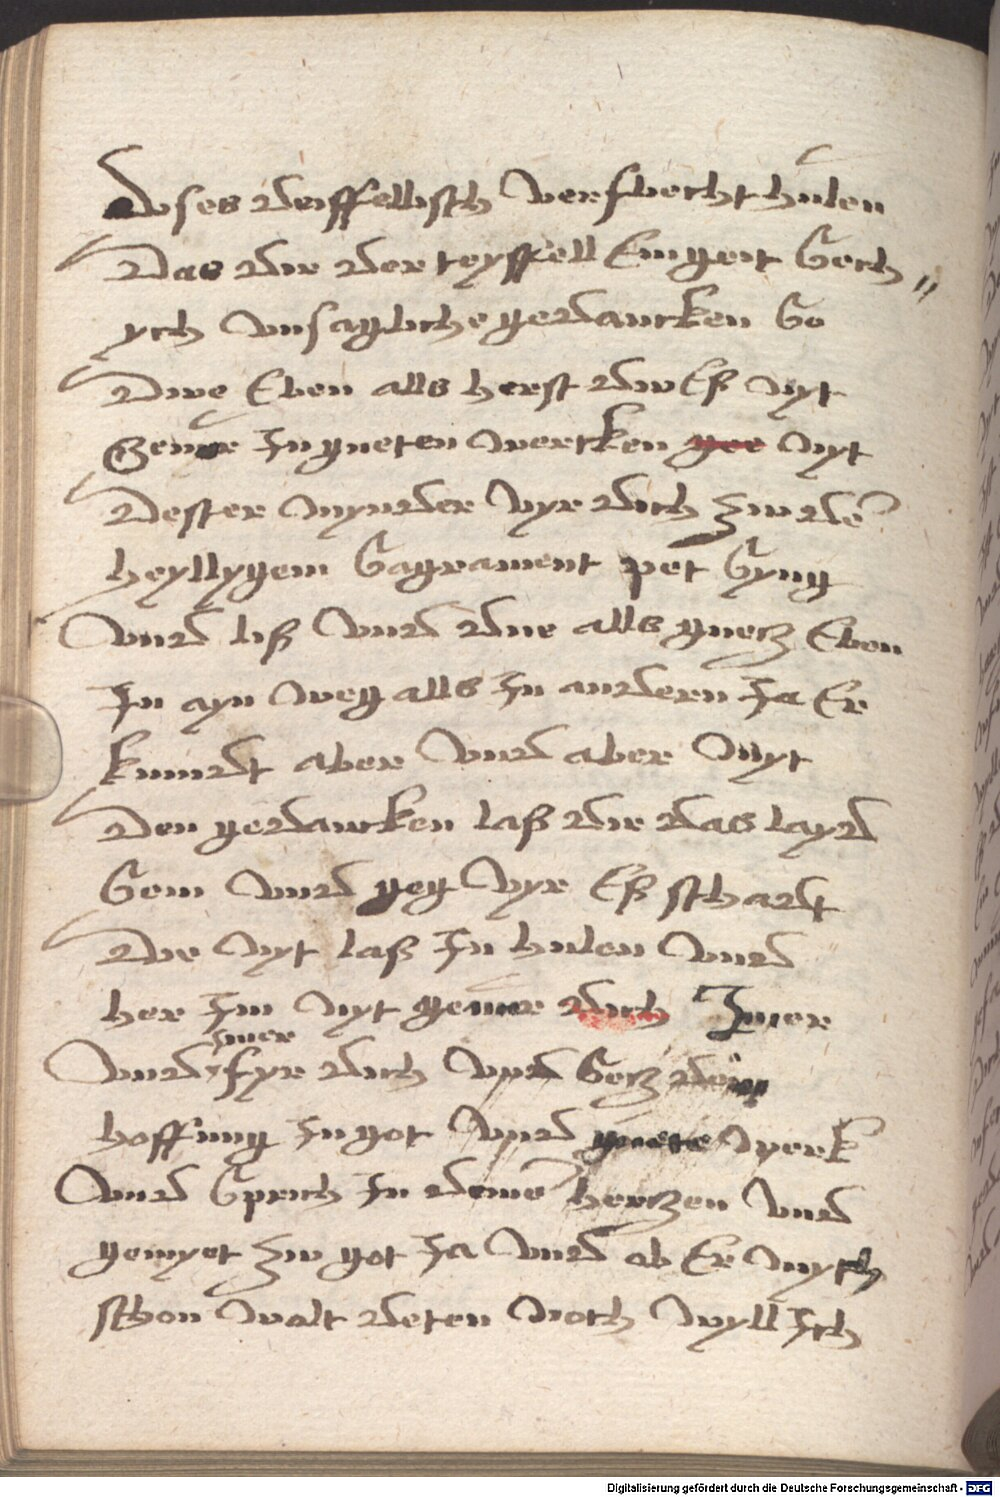 Doses deiffellisch verfluecht hulen
Das dir der teyffell Eingeit Sech
ych unsagliche gedancken So
Dwe Eben alls herst dw Eß nyt
Gewer In gueten wercken gee nyt
Dester mynder Vyr dich zw de
heyllygem Sagrament pet Syng
Vnd liß Vnd due alls guetz Eben
In ayn weg alls In andern Ja Er
kumdt aber Vnd aber Nyt
Den gedancken laß dir das layd
Sein Vnd geg Vyr Eß schadt
Die Nyt laß In hulen Vnd
her Im Nyt gewer dich Imer
imer
Vnd fyr dich Vnd Setz dein
hoffnung In got Vnd guete Werk
Vnd Sprich In deine hertzen Vnd
gemyet zw got Ja Vnd ob Er mych
schon walt deten noch Wyll Ich
Digitalisierung gefördert durch die Deutsche Forschungsgemeinschaft - DFG